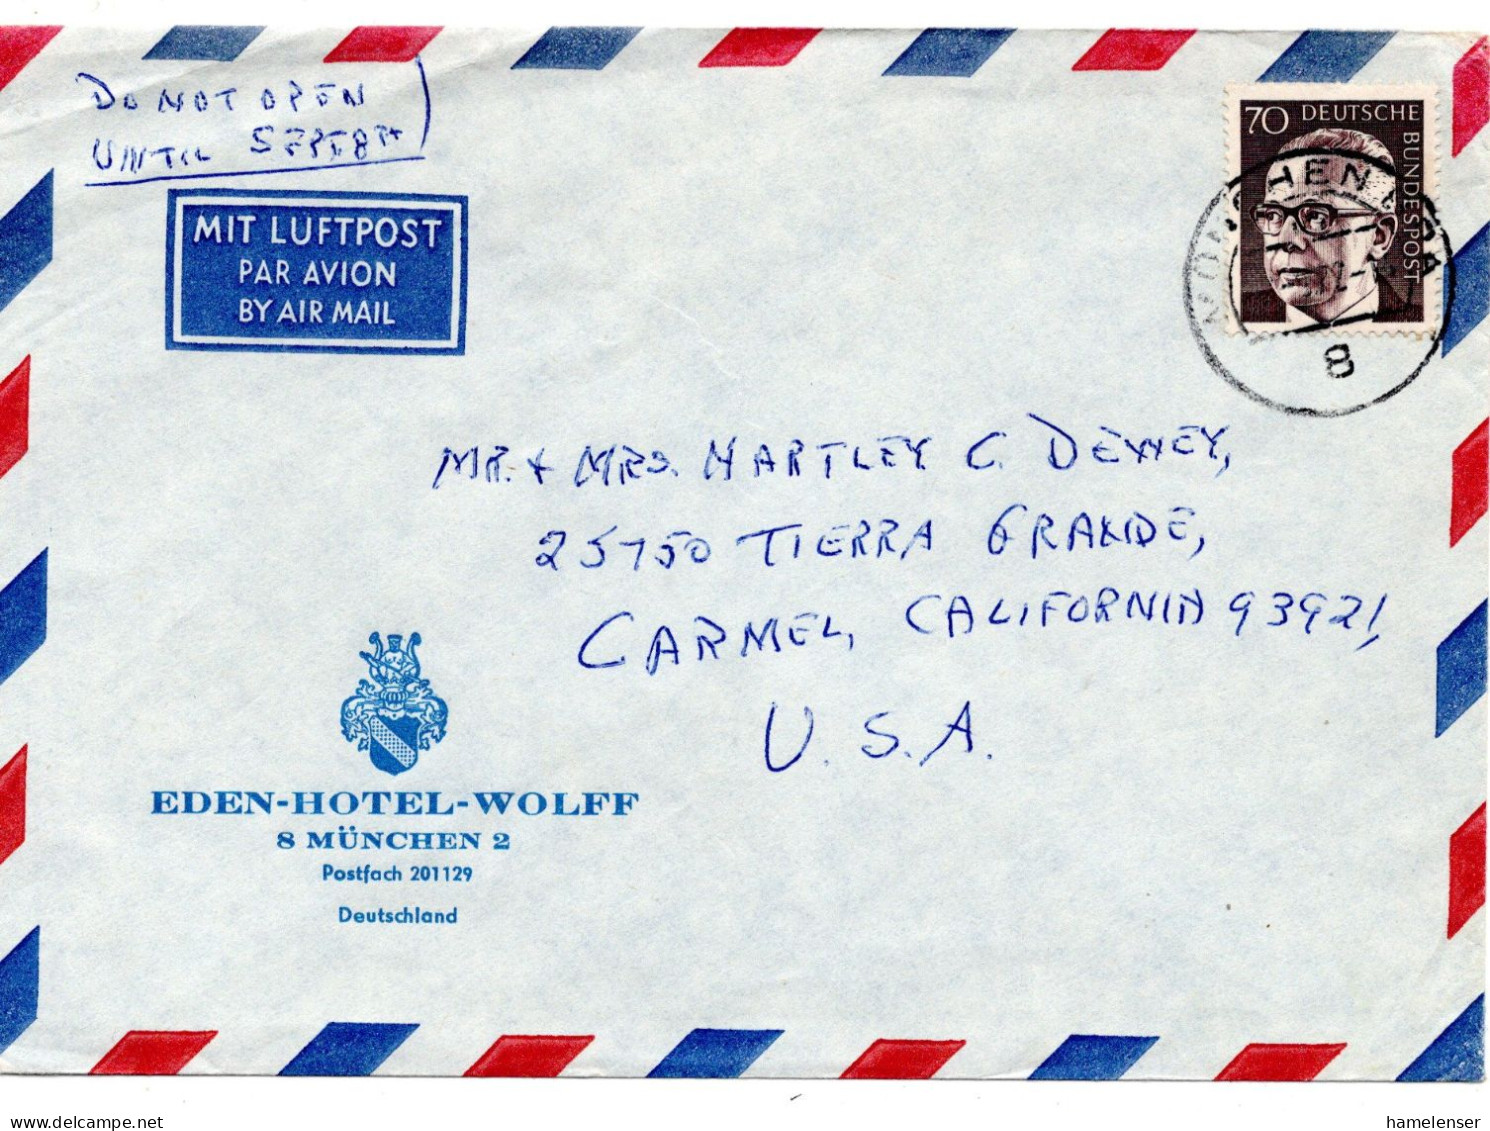 DO NOT OPEN
UNTIL SEPT 8TH
MIT LUFTPOST
PAR AVION
BY AIR MAIL
70 DEUTSCHE
BUNDESPOST
MÜNCHEN
8
MR. + MRS. HARTLEY C. DEWEY,
25750 TIERRA GRANDE,
CARMEL, CALIFORNIA 93921,
U.S.A.
EDEN-HOTEL-WOLFF
8 MÜNCHEN 2
Postfach 201129
Deutschland
hamelenser